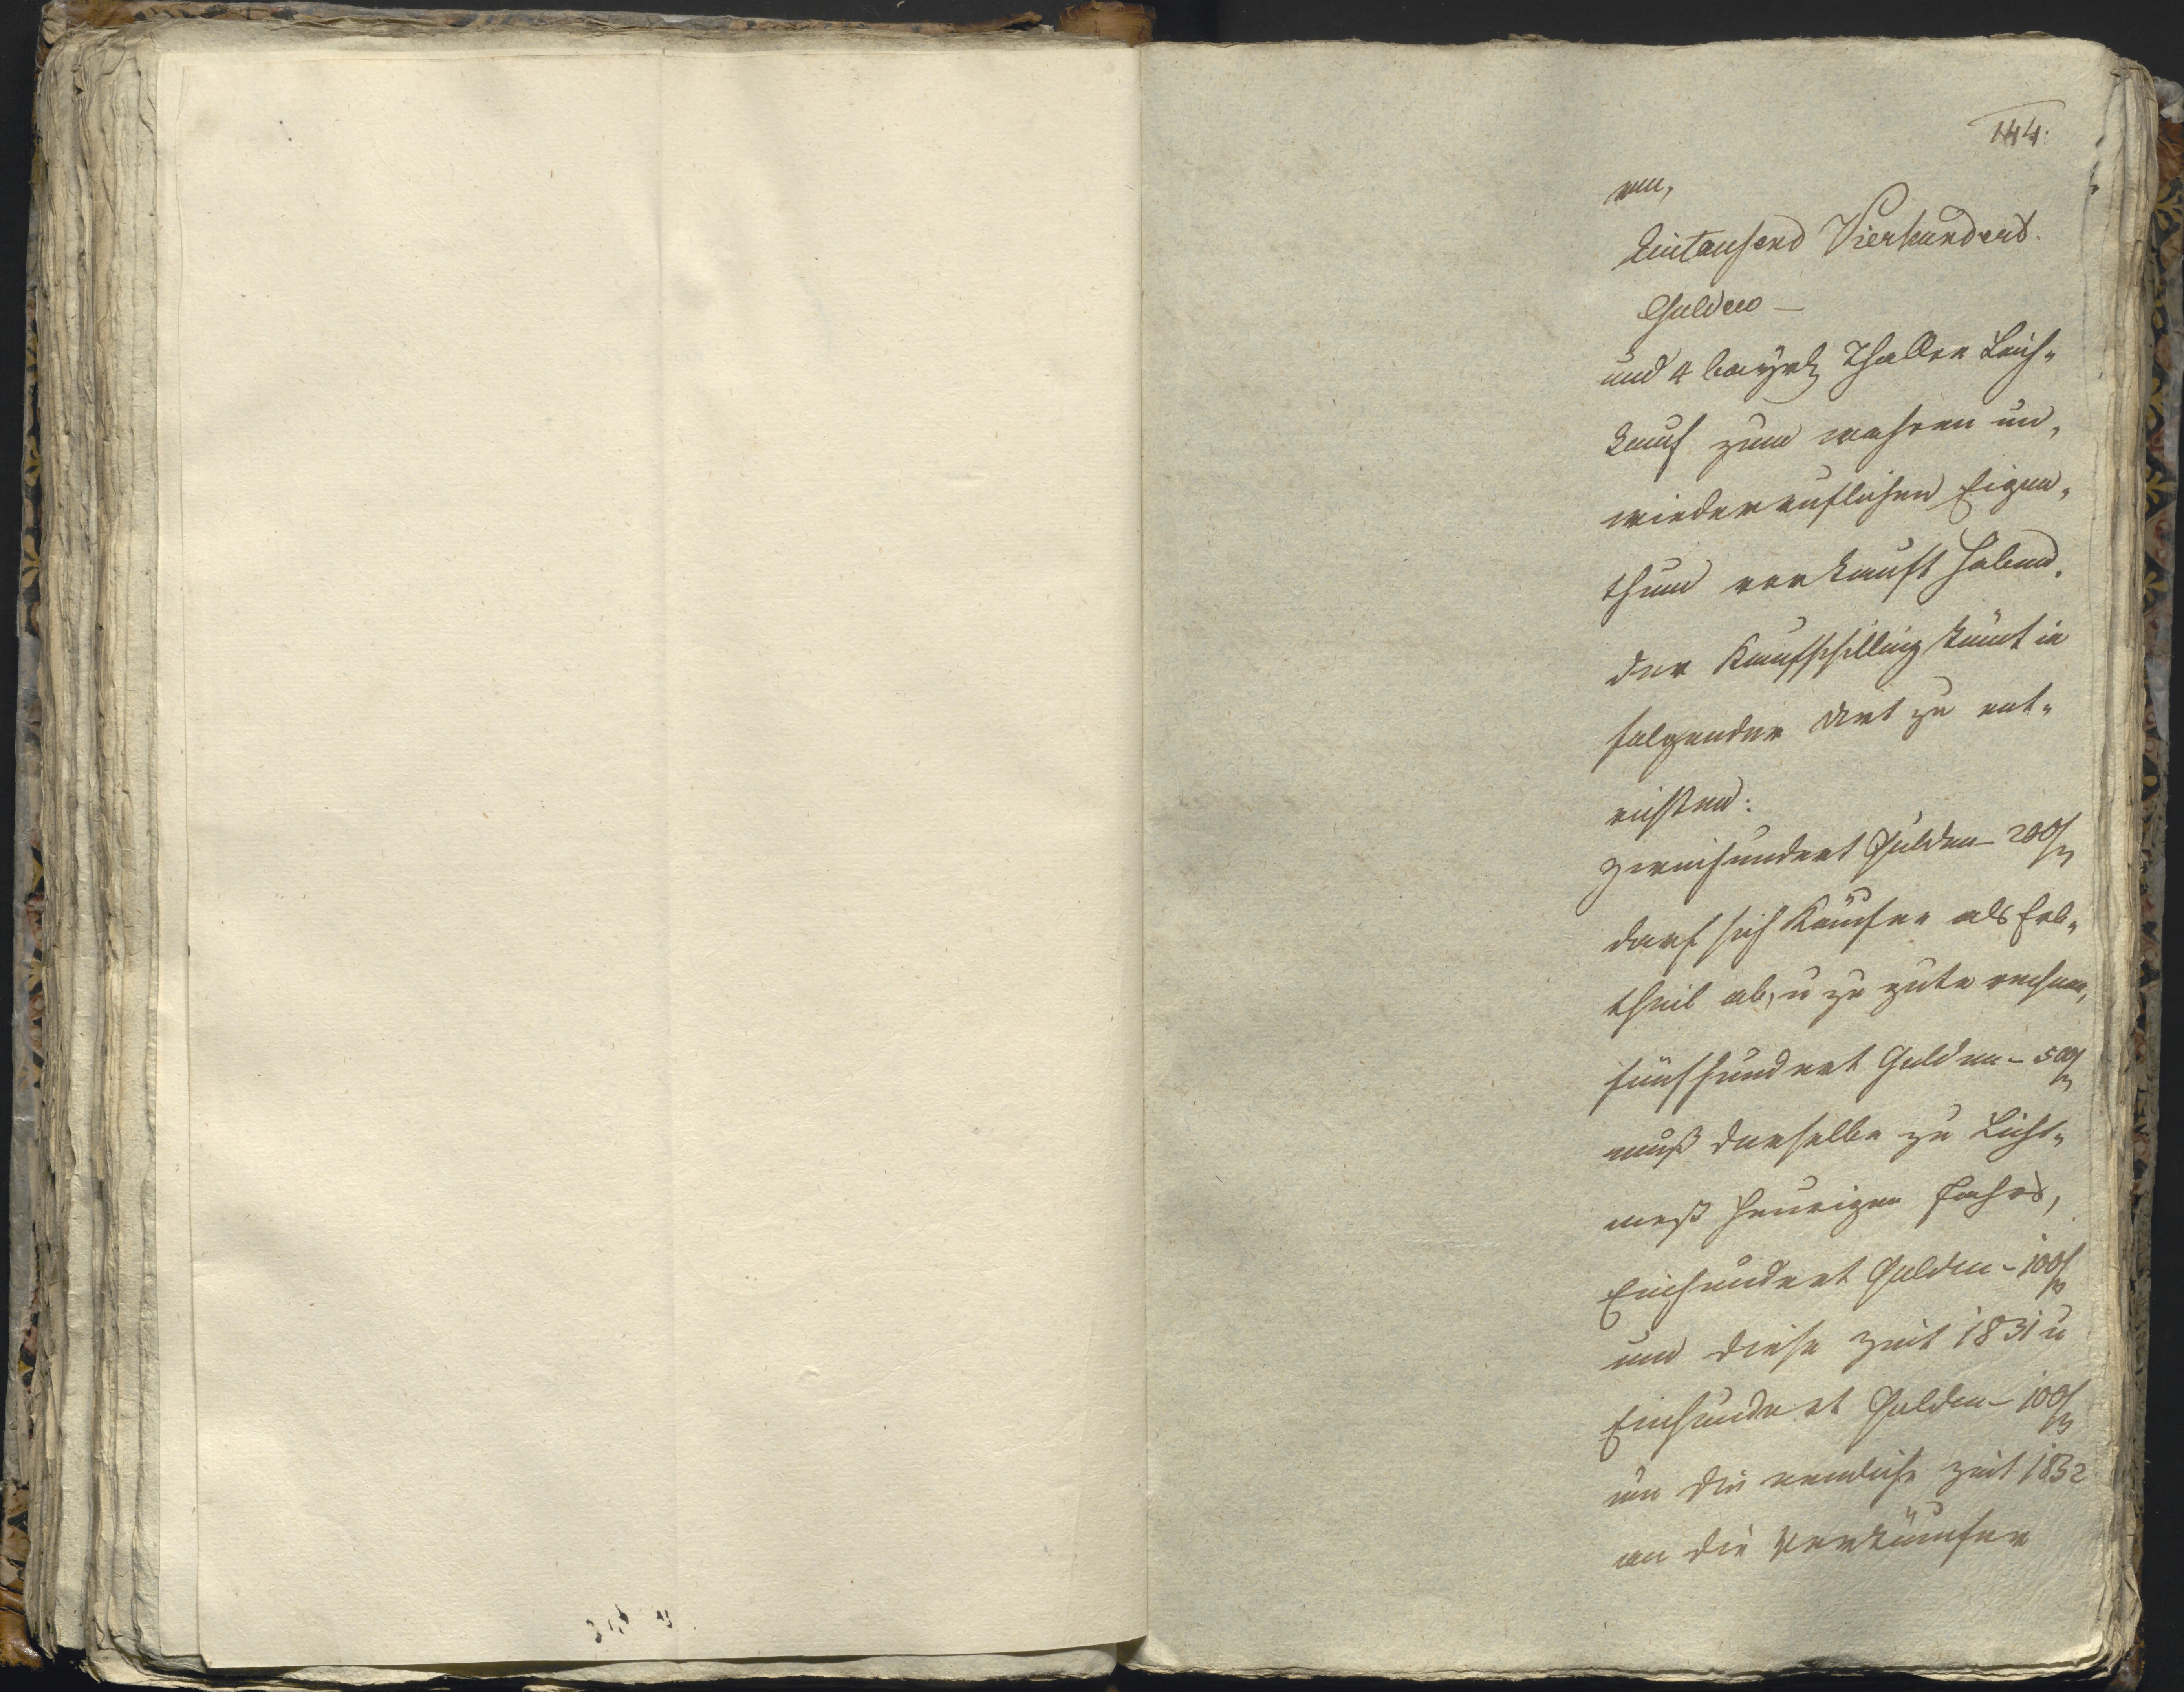 144.
ren,
Eintausend Vierhundert
Gulden —
und 4 bayrl Thaller Leih„
kauf zum wahren un„
wiederruflichen Eigen„
thum verkauft haben.
Der Kaufschilling kömt in
folgender Art zu ent„
richten:
Zweihundert Gulden – 200 f
darf sich Käufer als Erb„
theil ab, u zu gute rechnen,
fünfhundert Gulden – 500 f
muß derselbe zu Licht„
meß heurigen Jahrs,
Einhundert Gulden – 100 f
um diese Zeit 1831 u
Einhundert Gulden – 100 f
um die nemliche Zeit 1832
an die Verkäufer